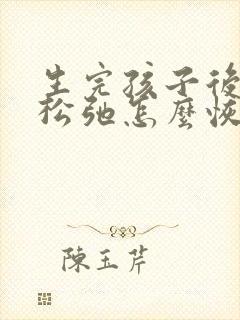 生完孩子後
松弛怎麼恢
陳玉芹